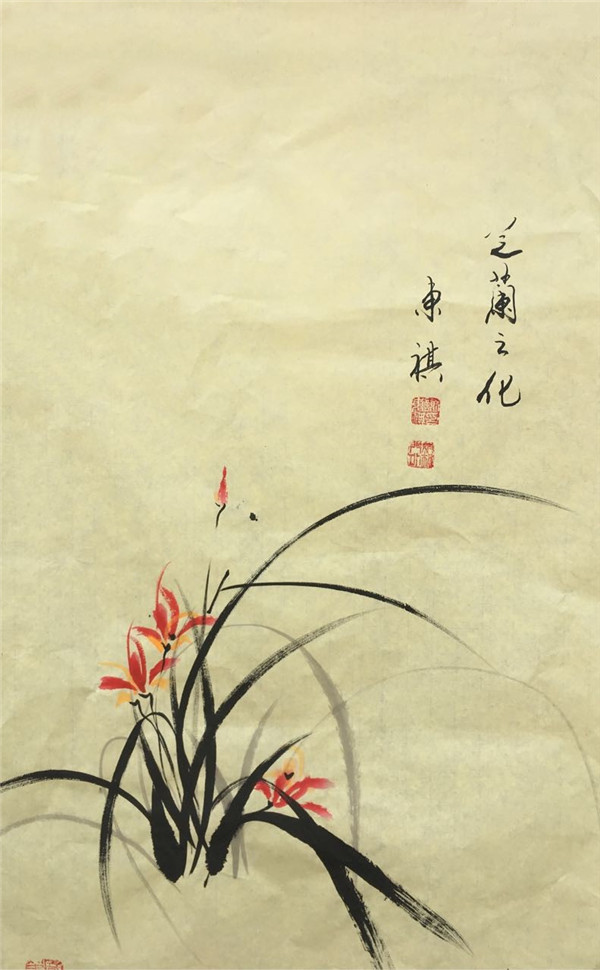 芝蘭之化
東祺